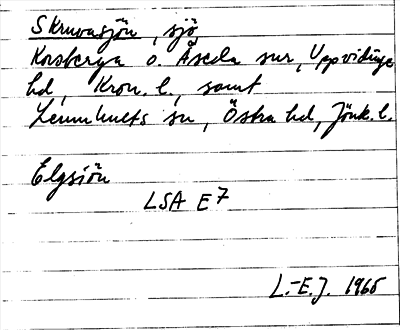 Skruvasjön, sjö,
Korsberga o. Åseda snr, Uppvidinge
hd, Kron. l., samt
Lemnhults sn, Östra hd, Jönk. l.
Elgsiön
LSA E7
L.-E.J. 1965